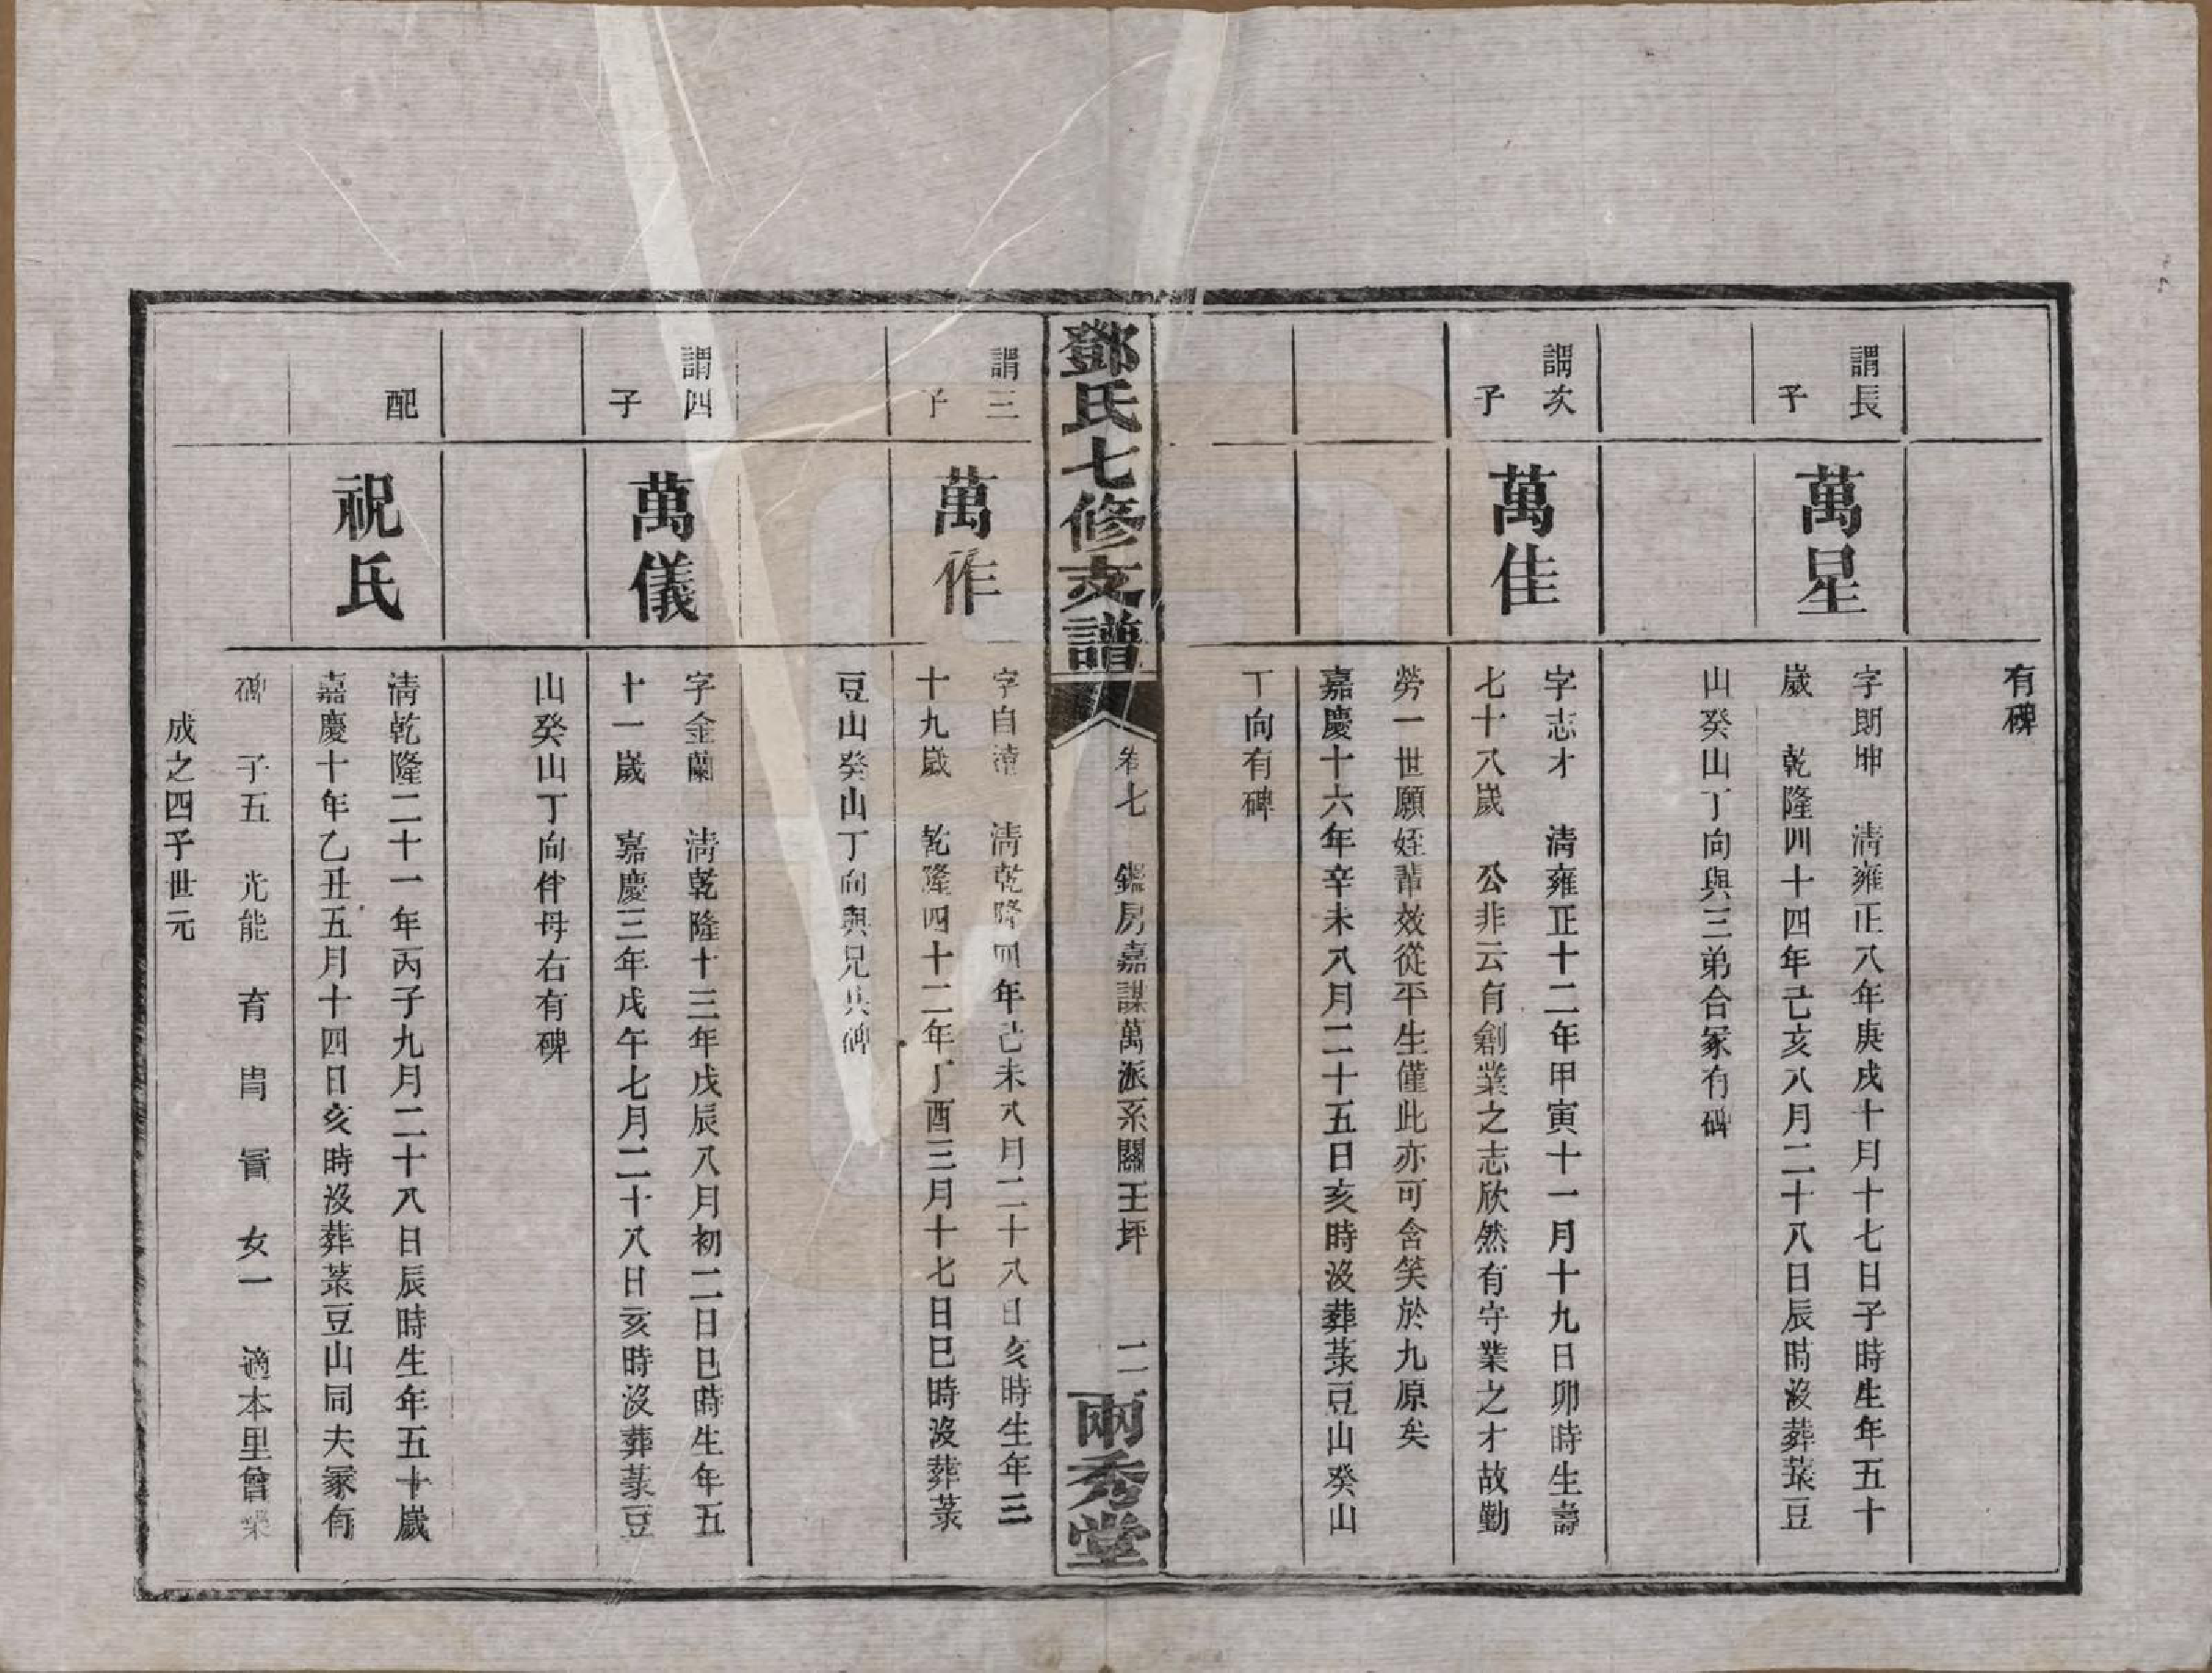 有碑
謂長子
萬星
字朗坤　清雍正八年庚戌十月十七日子時生年五十
歲　乾隆四十四年己亥八月二十八日辰時沒葬菉豆
山癸山丁向與三弟合冢有碑
謂次子
萬佳
字志才　清雍正十二年甲寅十一月十九日卯時生壽
七十八歲　公非云有創業之志欣然有守業之才故勤
勞一世願姪輩效從平生僅此亦可含笑於九原矣
嘉慶十六年辛未八月二十五日亥時沒葬菉豆山癸山
丁向有碑
鄧氏七修支譜
卷七　鑑房嘉謀萬派系關王坪　二
兩秀堂
謂三子
萬作
字自清　清乾隆四年己未八月二十八日亥時生年三
十九歲　乾隆四十二年丁酉三月十七日巳時沒葬菉
豆山癸山丁向與兄共碑
謂四子
萬儀
字金蘭　清乾隆十三年戊辰八月初二日巳時生年五
十一歲　嘉慶三年戊午七月二十八日亥時沒葬菉豆
山癸山丁向伴母右有碑
配
祝氏
清乾隆二十一年丙子九月二十八日辰時生年五十歲
嘉慶十年乙丑五月十四日亥時沒葬菉豆山同夫冢有
碑　子五　光能　育　冑　冐　女一　適本里曾榮
成之四子世元